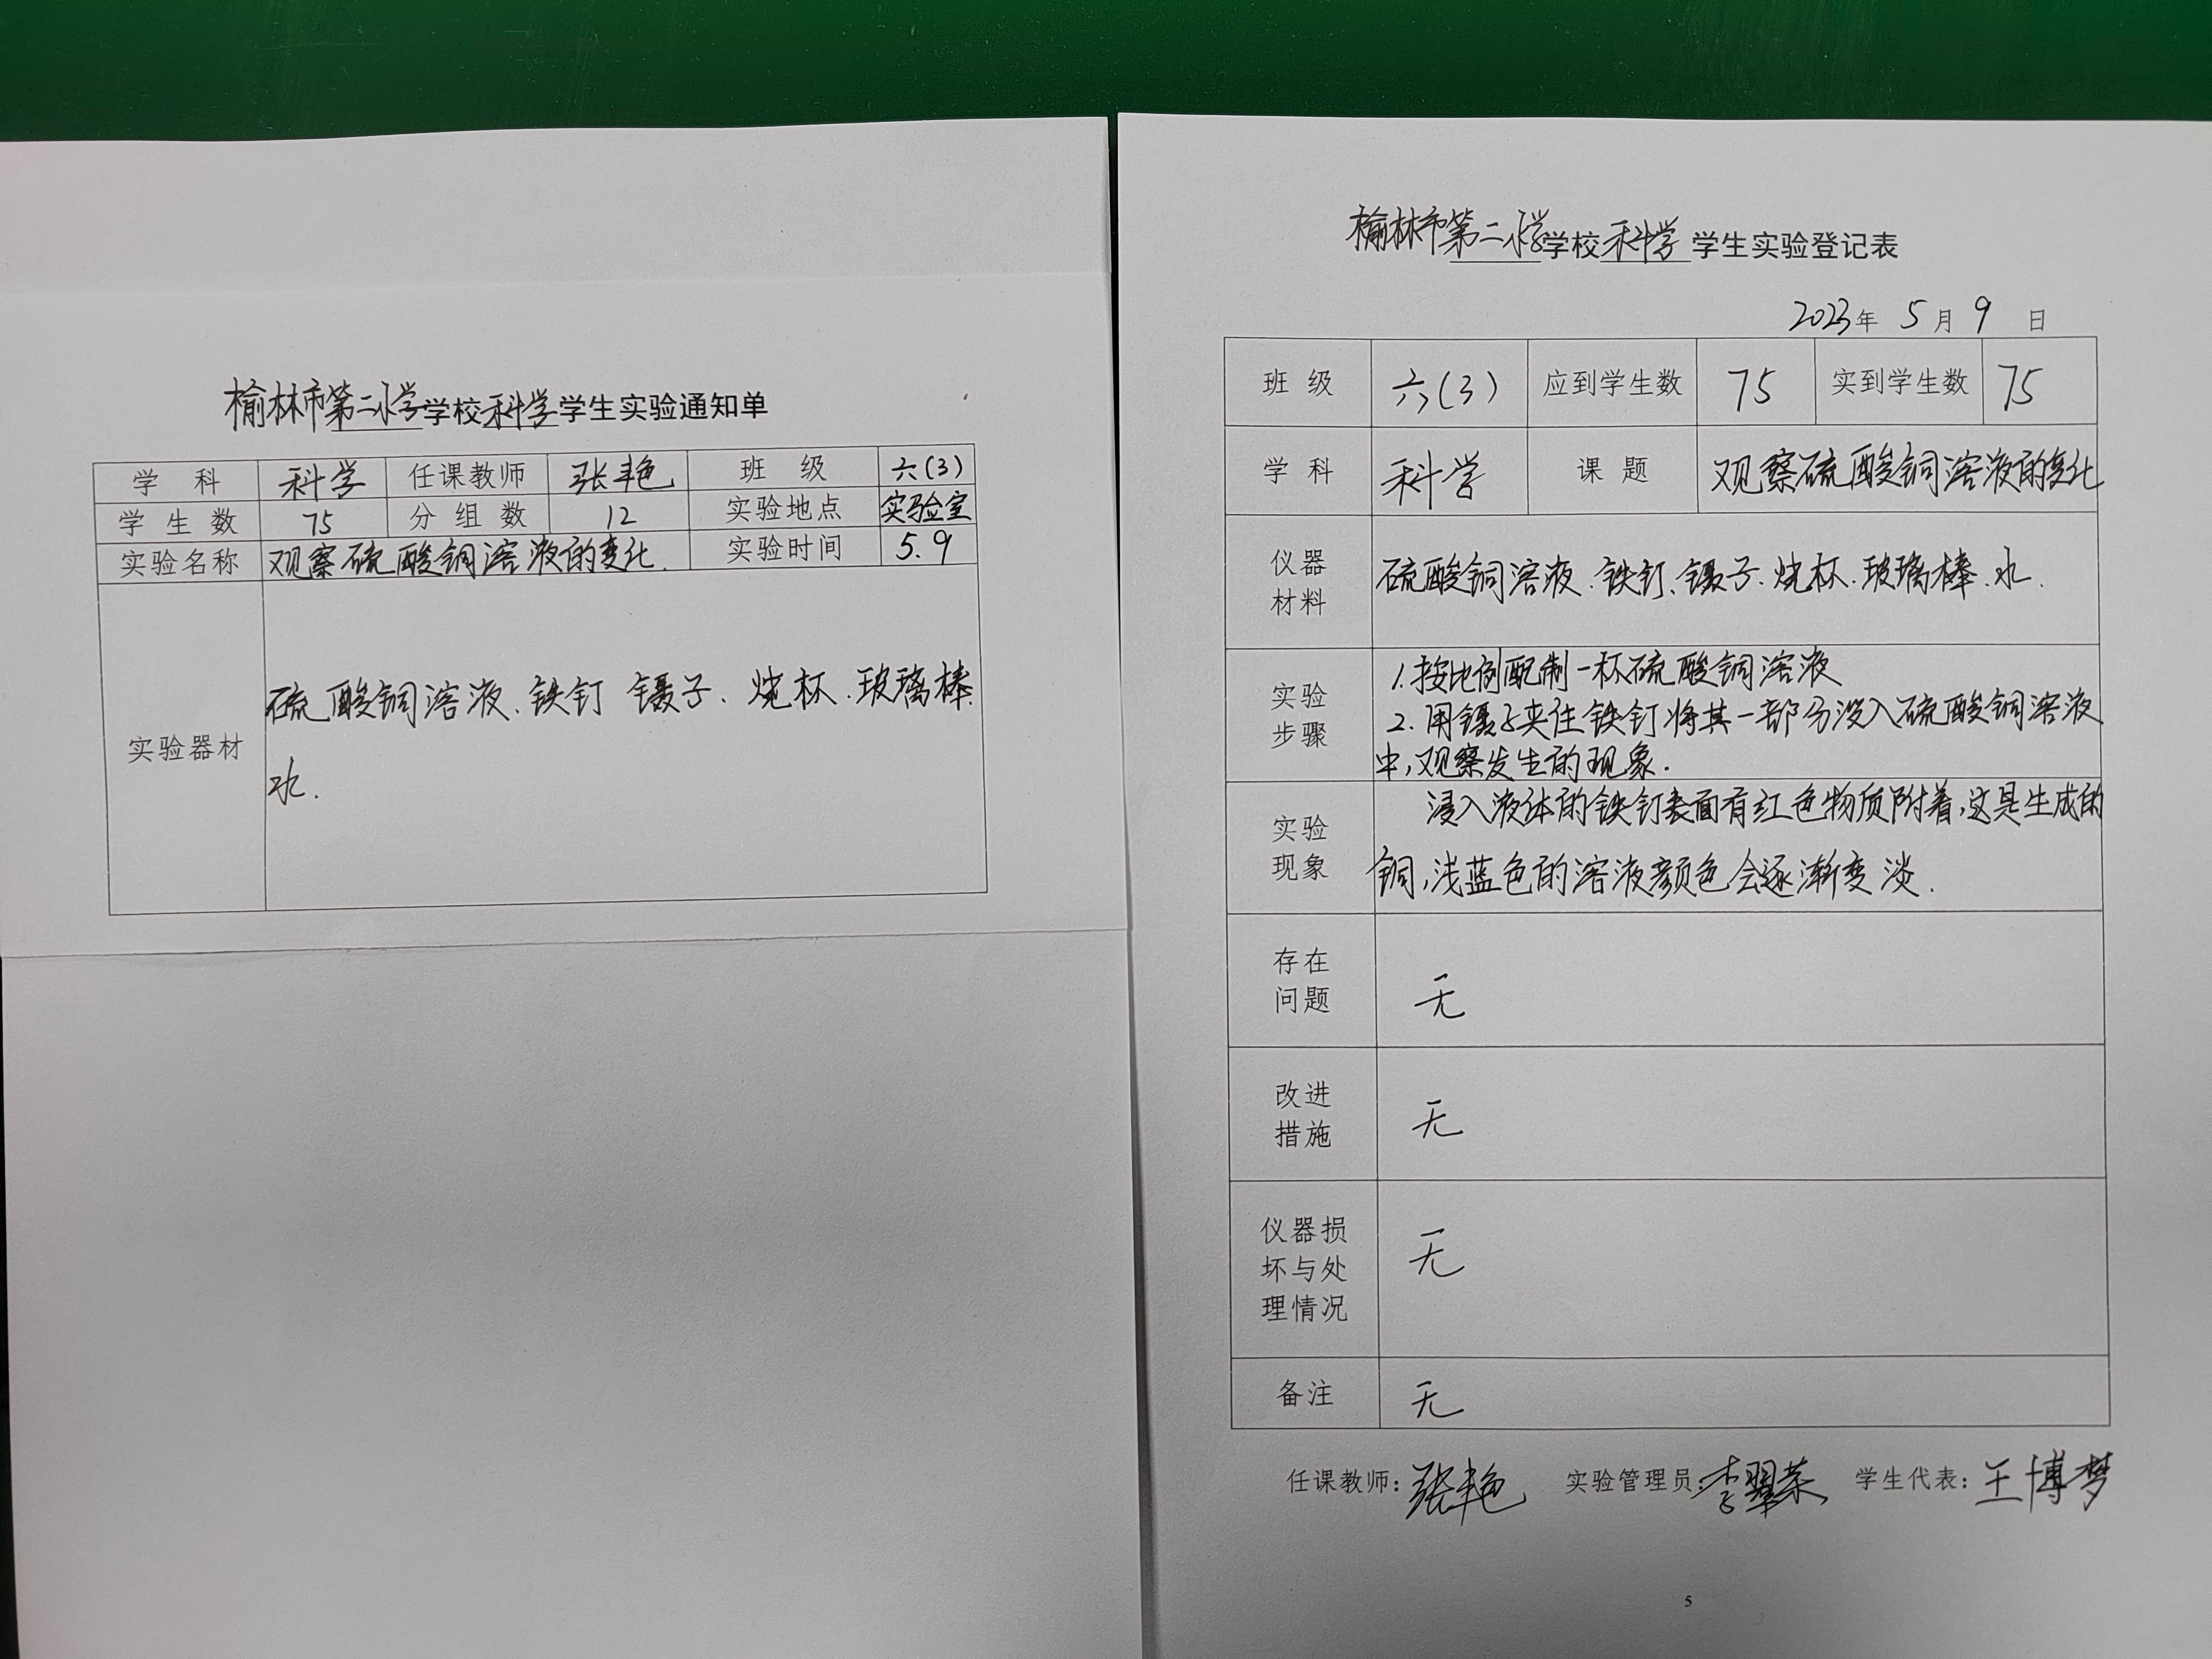 榆林市第二小学学校科学学生实验通知单
学 科 科学 任课教师 张艳 班 级 六(3)
学 生 数 75 分 组 数 12 实验地点 实验室
实验名称 观察硫酸铜溶液的变化. 实验时间 5.9
实验器材
硫酸铜溶液.铁钉 镊子.烧杯.玻璃棒.
水.
榆林市第二小学学校科学学生实验登记表
2023年 5月9日
班 级 六(3) 应到学生数 75 实到学生数 75
学 科 科学 课 题 观察硫酸铜溶液的变化
仪器
材料
硫酸铜溶液.铁钉.镊子.烧杯.玻璃棒.水.
实验
步骤
1.按比例配制一杯硫酸铜溶液
2.用镊子夹住铁钉将其一部分浸入硫酸铜溶液
中,观察发生的现象.
实验
现象
浸入液体的铁钉表面有红色物质附着,这是生成的
铜,浅蓝色的溶液颜色会逐渐变淡.
存在
问题
无
改进
措施
无
仪器损
坏与处
理情况
无
备注 无
任课教师:张艳 实验管理员:李翠荣 学生代表:王博梦
5